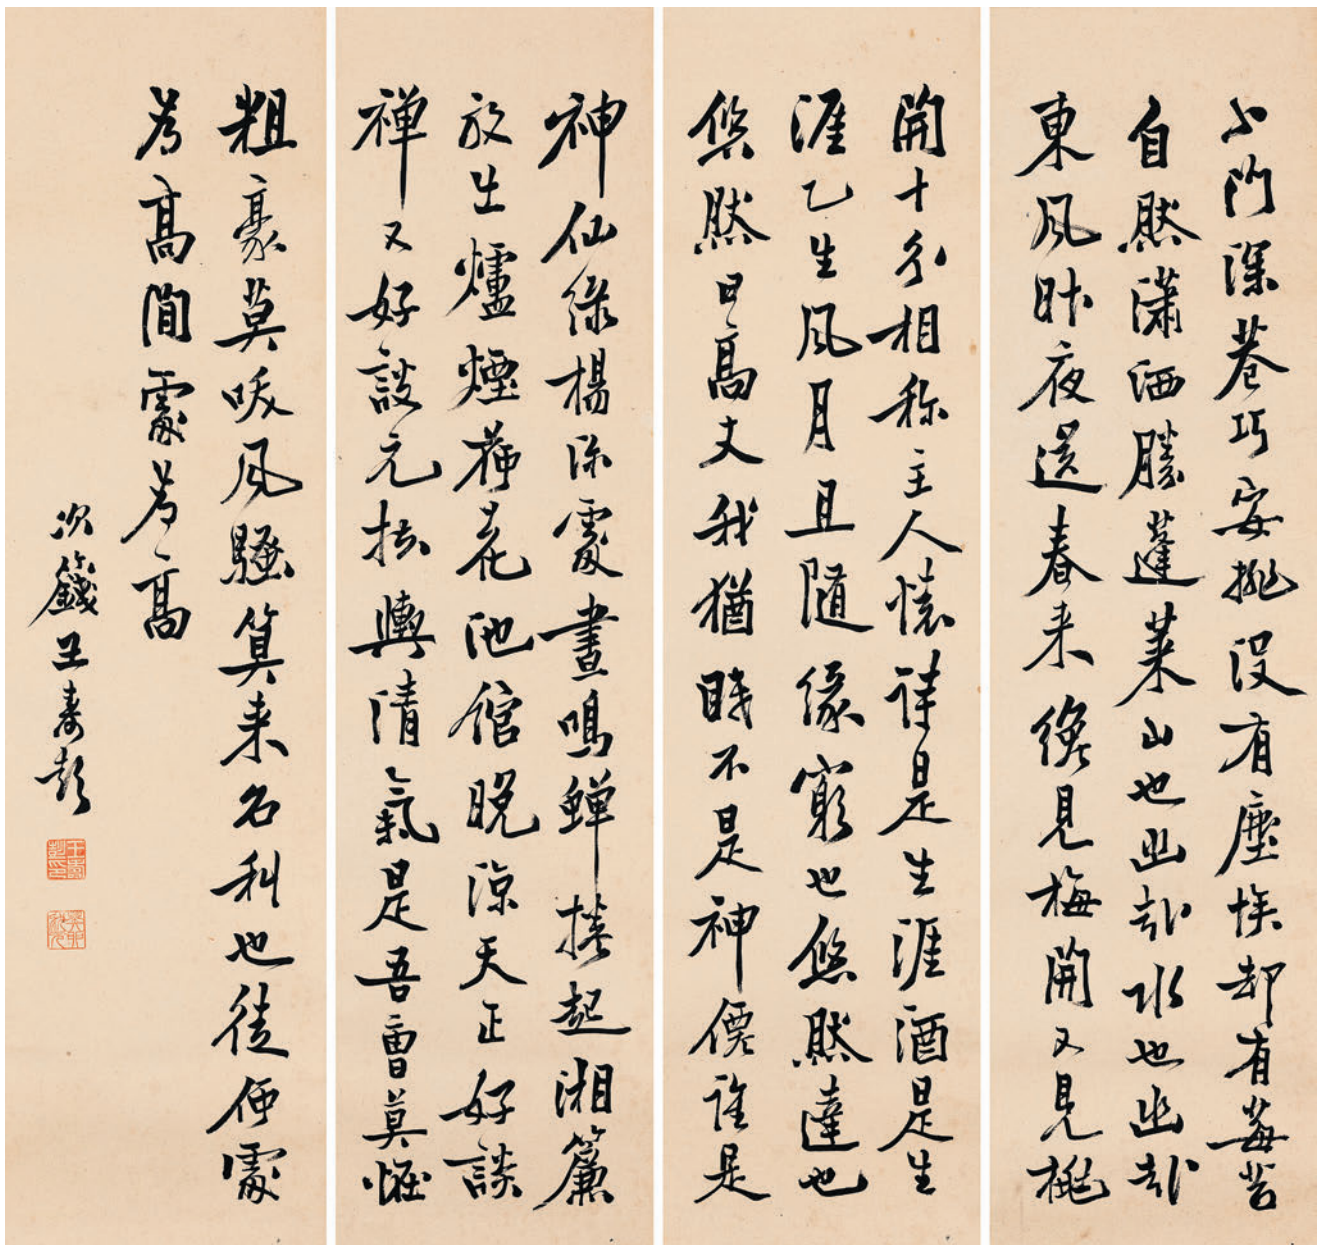 小門深巷巧安排没有塵埃却有莓苔
自然瀟洒勝蓬萊山也幽哉水也幽哉
東風昨夜送春来纔見梅開又見桃
開十分相称主人懷詩是生涯酒是生
涯乙生風月且隨緣窮也悠然達也
悠然日高丈我猶眠不是神僊誰是
神仙綠楊深處晝鳴蟬捲起湘簾
放出爐煙荷花池館晚涼天正好談
禅又好談元扶輿清氣是吾曹莫怪
粗豪莫咲風騷算来名利也徒何處
為高閒處為高
次籛王壽彭
王壽彭印